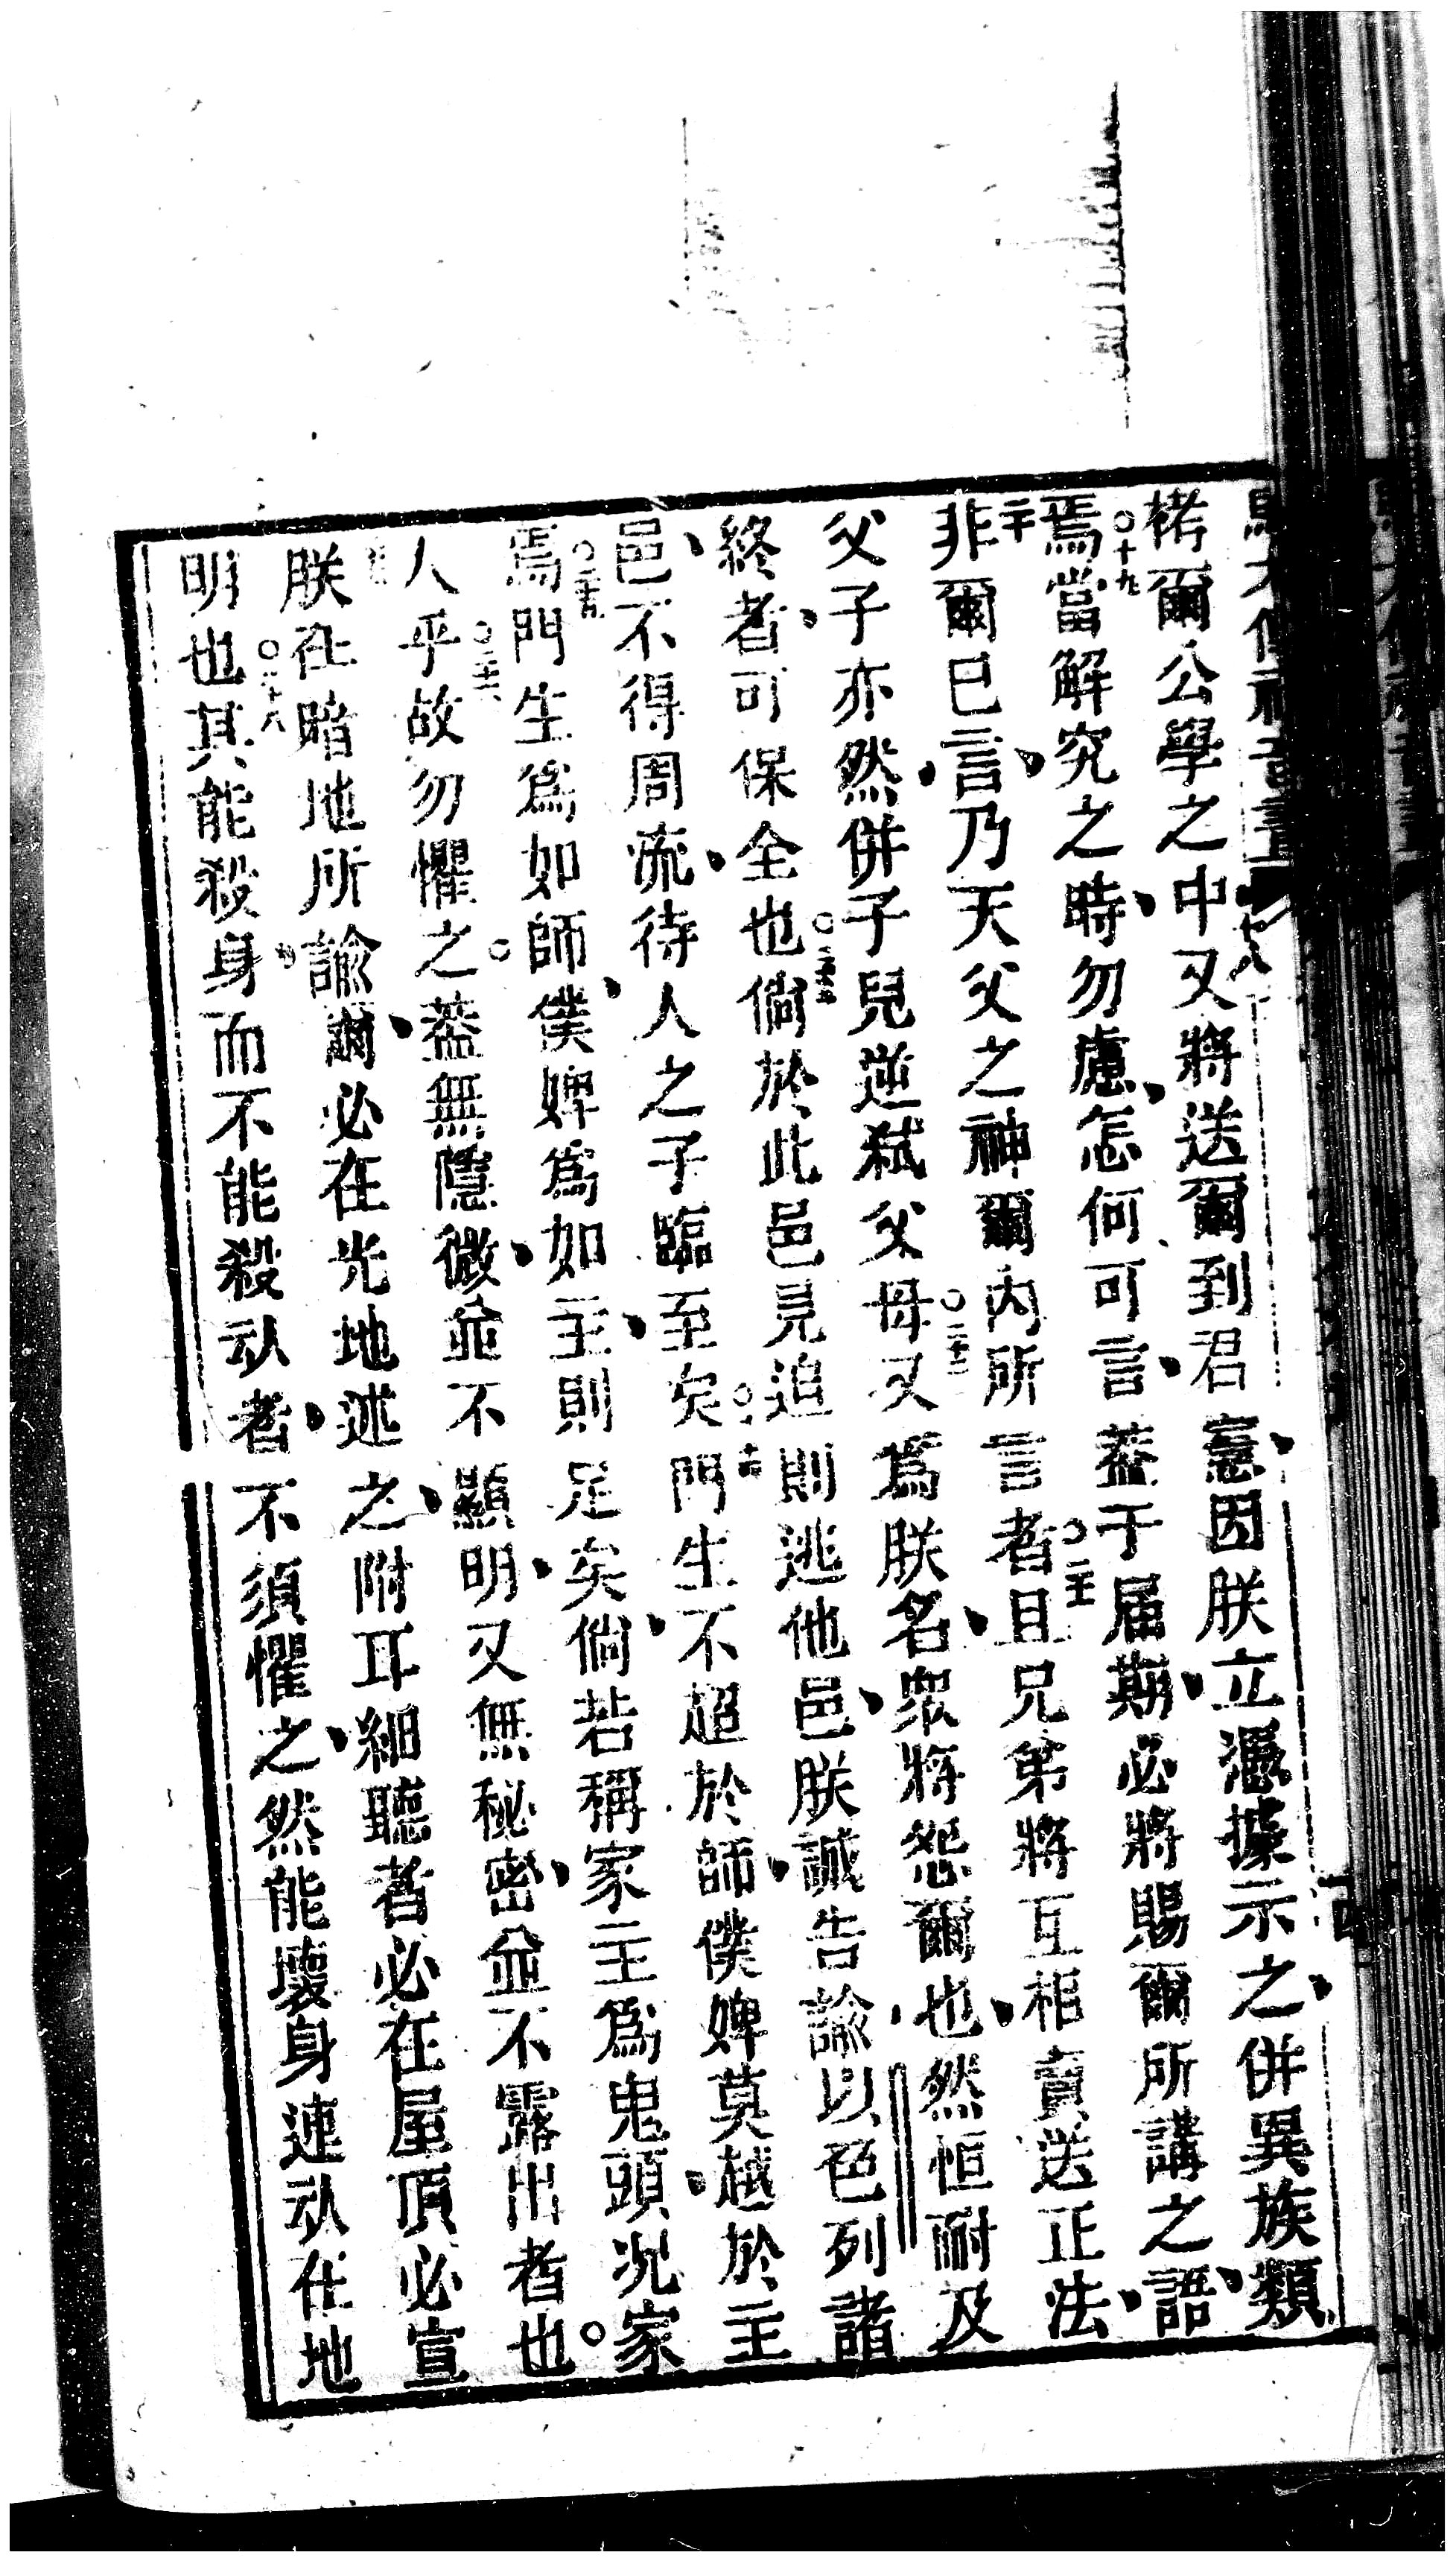 栳爾公學之中又將送爾到君憲、因朕立憑據示之、併異族類
焉○十九當解究之時、勿慮、怎何可言、蓋于屆期、必將賜爾所講之語、
非爾已言、乃天父之神爾內所言者○且兄弟將互相賣送正法、
父子亦然、併子兒逆弑父母○又爲朕名、眾將怨爾也、然恒耐及
終者、可保全也○倘於此邑見追則逃他邑、朕誠告諭、以色列諸
邑、不得周流、待人之子臨至矣○門生不超於師、僕婢莫越於主
焉○門生爲如師、僕婢爲如主、則足矣、倘若稱家主爲鬼頭、況家
人乎○故勿懼之。蓋無隱微、並不顯明、又無秘密、並不露出者也。
朕在暗地所諭爾、必在光地述之、附耳細聽者、必在屋頂必宣
明也○其能殺身、而不能殺㐹者、不須懼之、然能壞身連㐹在地